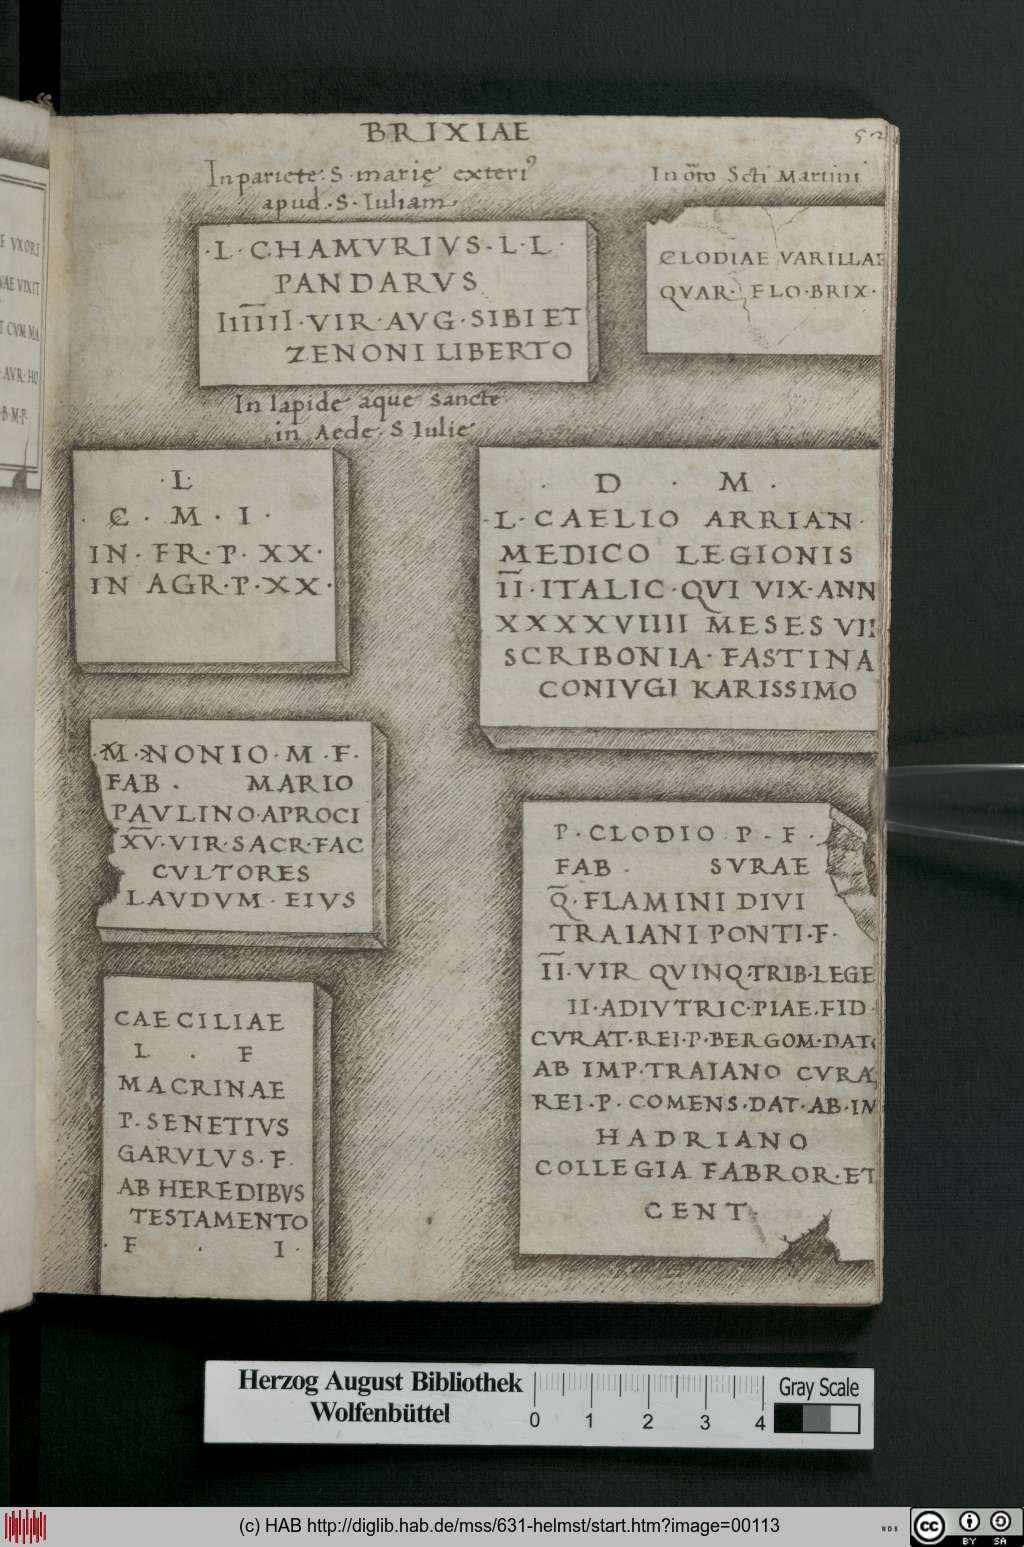 BRIXIAE
52
In pariete S. marię exteri⁹
apud. S. Iuliam
·L· CHAMVRIVS · L · L ·
PANDARVS
IIIIII · VIR · AVG · SIBI ET
ZENONI LIBERTO
In orõ Scti Martini
CLODIAE VARILLAE
QVAR · FLO · BRIX ·
In lapide aque sancte
in Aede. S Iulie
· L ·
· C · M · I ·
IN · FR · P · XX ·
IN AGR · P · XX ·
· D · M ·
· L · CAELIO ARRIAN ·
MEDICO LEGIONIS
II · ITALIC · QVI VIX · ANN
XXXXVIIII MESES VII
SCRIBONIA · FASTINA
CONIVGI KARISSIMO
· M · NONIO · M · F ·
FAB · MARIO
PAVLINO · APROCI
XV · VIR · SACR · FAC
CVLTORES
LAVDVM · EIVS
P · CLODIO P · F ·
FAB · SVRAE
Q · FLAMINI DIVI
TRAIANI PONTI · F ·
II · VIR QVINQ · TRIB · LEGE
II · ADIVTRIC · PIAE · FID ·
CVRAT · REI · P · BERGOM · DAT
AB IMP · TRAIANO CVRA
REI · P · COMENS · DAT · AB · IM
HADRIANO
COLLEGIA FABROR · ET
CENT ·
CAECILIAE
L · F
MACRINAE
P · SENETIVS
GARVLVS · F ·
AB HEREDIBVS
TESTAMENTO
· F · I ·
E VXORI
VAE VIXIT
T CVM MA
AVR · HO
· B · M · P ·
Herzog August Bibliothek
Wolfenbüttel
0 1 2 3 4
Gray Scale
(c) HAB http://diglib.hab.de/mss/631-helmst/start.htm?image=00113
WDB
cc BY SA